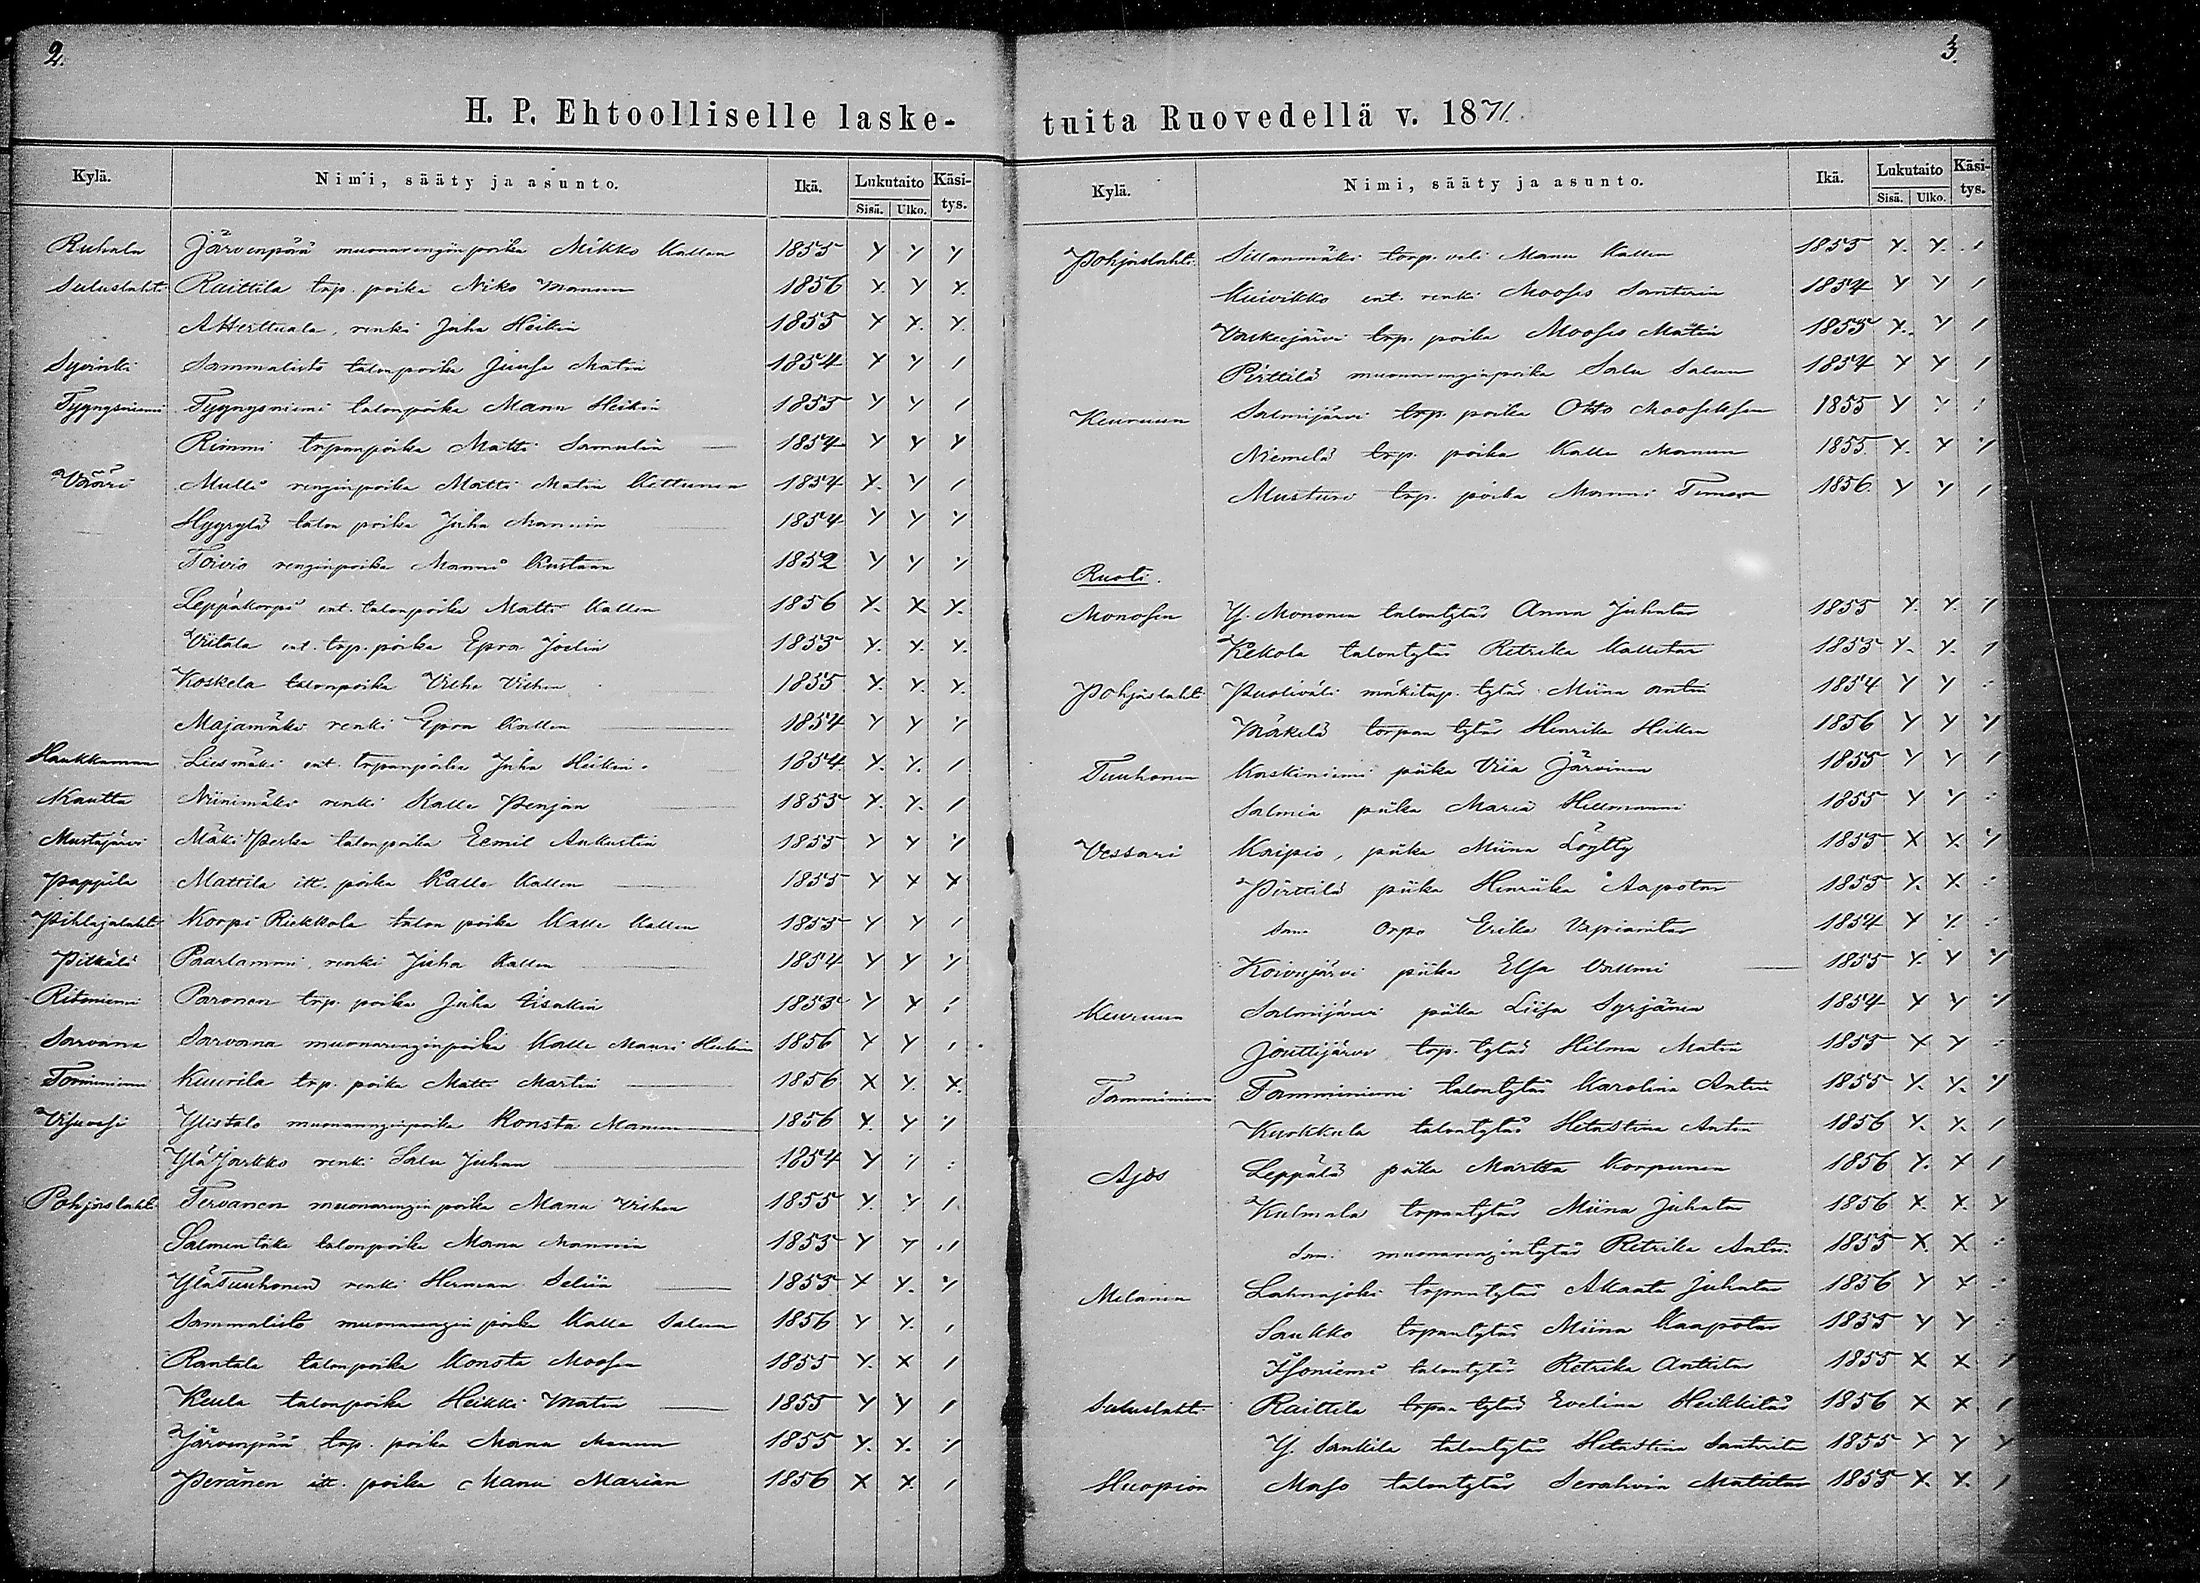 2.
H. P. Ehtoolliselle laske-
Kylä. Nimi, sääty ja asunto. Ikä. Lukutaito Käsi-
Sisä. Ulko. tys.
Ruhala Järvenpää muonarengin poika Mikko Kallen 1855 Y Y Y
Saluslaht. Raittila trp. poika Niko Manun 1856 Y. Y Y.
Atterttuala, renki Juha Heikin 1855 Y Y. Y.
Syvinki Sammalisto talonpoika Juusa Matin 1854 Y Y /
Tyynysniemi Tyynysniemi talonpoika Manu Heikin 1855 Y Y /
Rimmi torpanpoika Matti Samulin 1854 Y Y Y
Vääri Mulli renginpoika Matti Matin Kettunen 1854 Y. Y /
Hyyrylä talon poika Juha Mannin 1854 Y Y Y
Toivio renginpoika Manni Kustaan 1852 Y Y Y
Leppäkorpi ent. talonpoika Matti Kallen 1856 Y. X Y.
Viitala ent. trp. poika Epra Joelin 1853 Y. Y. Y.
Koskela talonpoika Vilhe Vilhen 1855 Y. Y. Y.
Majamäki renki Epra Kallen 1854 Y Y Y
Haukkamaa Liesmäki ent. torpanpoika Juha Heikin 1854 Y. Y. /
Kautta Niinimäki renki Kalle Penjan 1855 Y. Y. /
Mustajärvi Mäki Perha talonpoika Eemil Aukustin 1855 Y Y Y
Pappila Mattila itt. poika Kalle Kallen 1855 Y X X
Pihlajalahti Korpi Riekkola talon poika Kalle Kallen 1855 Y Y /
Pitkälä Paarlammi, renki Juha Kallen 1854 Y Y Y
Ritoniemi Paronen trp. poika Juha Eisakin 1853 Y Y /
Sarvana Sarvana muonarenginpoika Kalle Mauri Heikin 1856 Y Y /
Torniemi Kuurila trp. poika Matti Martin 1856 X Y. X.
Visuvesi Ylistalo muonarenginpoika Konsta Manun 1856 X. Y Y
Ylä Jarkko renki Salu Juhan 1854 Y
Pohjaslaht. Tervanen muonarengin poika Manu Vilhen 1855 Y. Y /
Salmentaka talonpoika Manu Mannin 1853 Y Y /
YläTuuhonen renki Herman Selin 1855 X Y. Y
Sammalisto muonarengin poika Kalle Salun 1856 Y Y. /
Rantala talonpoika Konsta Moosen 1855 Y. X /
Keula talonpoika Heikki Matin 1855 Y Y /
Järvenpää trp. poika Manu Manun 1855 Y. Y. Y
Peränen itt. poika Manu Marian 1856 X X. /
3.
tuita Ruovedellä v. 1871.
Kylä. Nimi, sääty ja asunto. Ikä. Lukutaito Käsi-
Sisä. Ulko. tys.
Pohjaslahti. Sillanmäki torp. veli Manu Kallen 1855 Y. Y. /
Kuivikko ent. renki Mooses Santerin 1854 Y Y /
Vaskeejärvi trp. poika Mooses Matin 1855 Y. Y /
Pirttilä muonarenginpoika Salu Salun 1854 Y Y /
Keuruun Salmijärvi trp. poika Otto Mooseksen 1855 Y
Niemelä trp. poika Kalle Manun 1855 Y. Y Y
Musturi trp. poika Manni Timon 1856. Y Y /
Ruoti.
Monosen Y. Mononen talontytär Anna Juhatar 1855 Y. Y. Y
Kekkola talontytär Retrika Kalletar 1855 Y. Y. /
Pohjaslaht. Puoliväli mäkitup. tytär Miina Antin 1854 Y Y
Mäkelä torpan tytär Henrika Heikin 1856 Y Y Y
Tuuhonen Koskiniemi piika Viia Järvinen 1855 Y Y /
Salmia piika Maria Hellmanni 1855 Y Y
Vessari Kaipio, piika Miina Löytty 1855 X X. Y
Pirttilä piika Hinriika Aapotar 1855 Y. X.
Sam. orpo Erika Vapianitar 1854 Y Y.
Koivujärvi piika Elsa Vallmi 1855 Y. Y Y
Keuruun Salmijärvi piika Liisa Syrjänen 1854 Y Y Y
Jouttijärvi trp. tytär Hilma Matin 1855 X Y
Tamminiemi Tamminiemi talontytär Karolina Antin 1855 Y. Y. Y
Kurkkula talontytär Hetastina Antin 1856 Y. Y. /
Ajos Leppälä piika Martta Korpunen 1856 Y. X /
Kulmala torpantytär Miina Juhatar 1856 X. X. Y
Sam. muonarengintytär Retrika Antin 1855 X. X
Melanen Lahnajoki torpantytär Akaata Juhatar 1856 Y X
Saukko torpantytär Miina Kaapotar 1855 Y Y
Isoniemi talontytär Retrika Anttitar 1855 X X /
Saluslahti. Raittila torpan tytär Evelina Heikkitär 1856 X X /
Y. Sankila talontytär Hetastina Santritar 1855 Y Y Y
Huopion Maso talontytär Serahvia Mattitar 1855 X. X. /